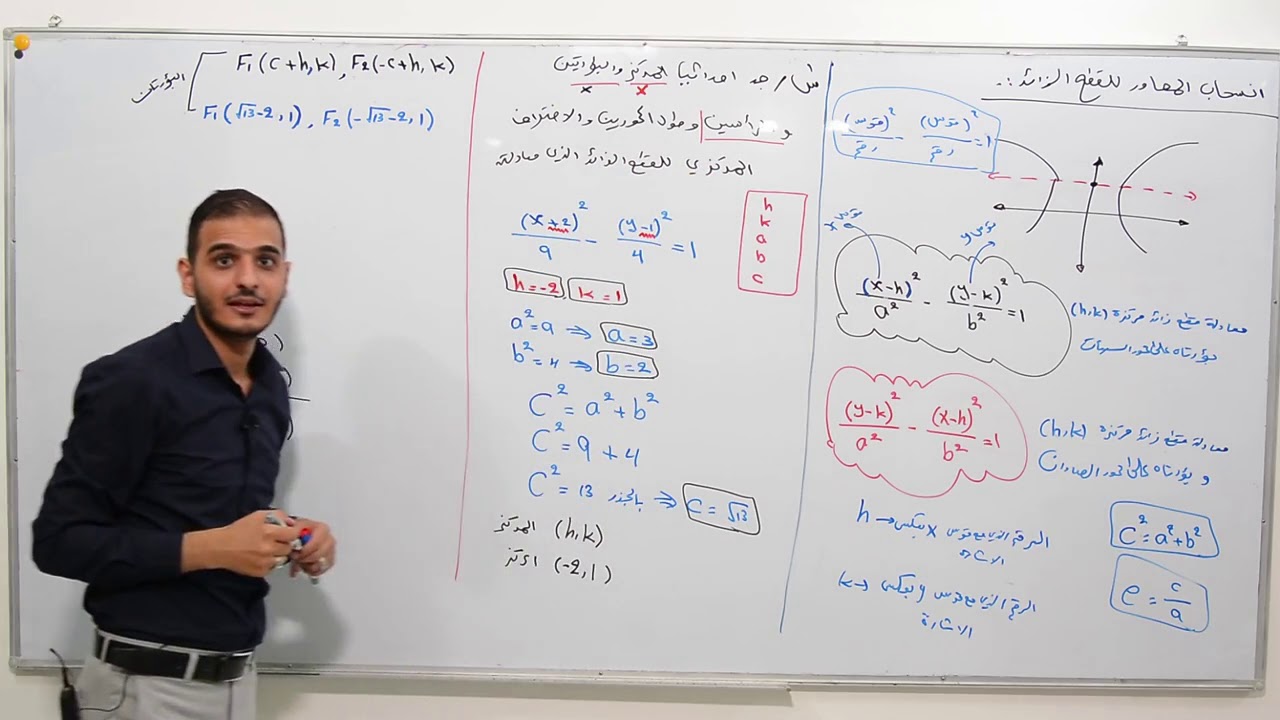 انسحاب المحاور للقطع الزائد :.
(قوس)² / رقم - (قوس)² / رقم = 1
قوس x
قوس y
(x-h)² / a² - (y-k)² / b² = 1
معادلة قطع زائد مركزه (h,k)
بؤرتاه على محور السينات
(y-k)² / a² - (x-h)² / b² = 1
معادلة قطع زائد مركزه (h,k)
و بؤرتاه على محور الصادات
الرقم الذي مع قوس x بعكس
الاشارة
h
C² = a² + b²
الرقم الذي مع قوس y بعكس
الاشارة
k
e = c/a
مث / جد احداثيا المركز والبؤرتين
x x
والرأسين وطول المحورين والاختلاف
المركزي للقطع الزائد الذي معادلته
(x+2)² / 9 - (y-1)² / 4 = 1
h
k
a
b
c
h=-2 k=1
a²=9 ⇒ a=3
b²=4 ⇒ b=2
C² = a² + b²
C² = 9 + 4
C² = 13 بالجذر ⇒ C = √13
المركز (h,k)
(-2,1)
البؤرتين
F₁(C+h,k), F₂(-C+h,k)
F₁(√13-2,1), F₂(-√13-2,1)